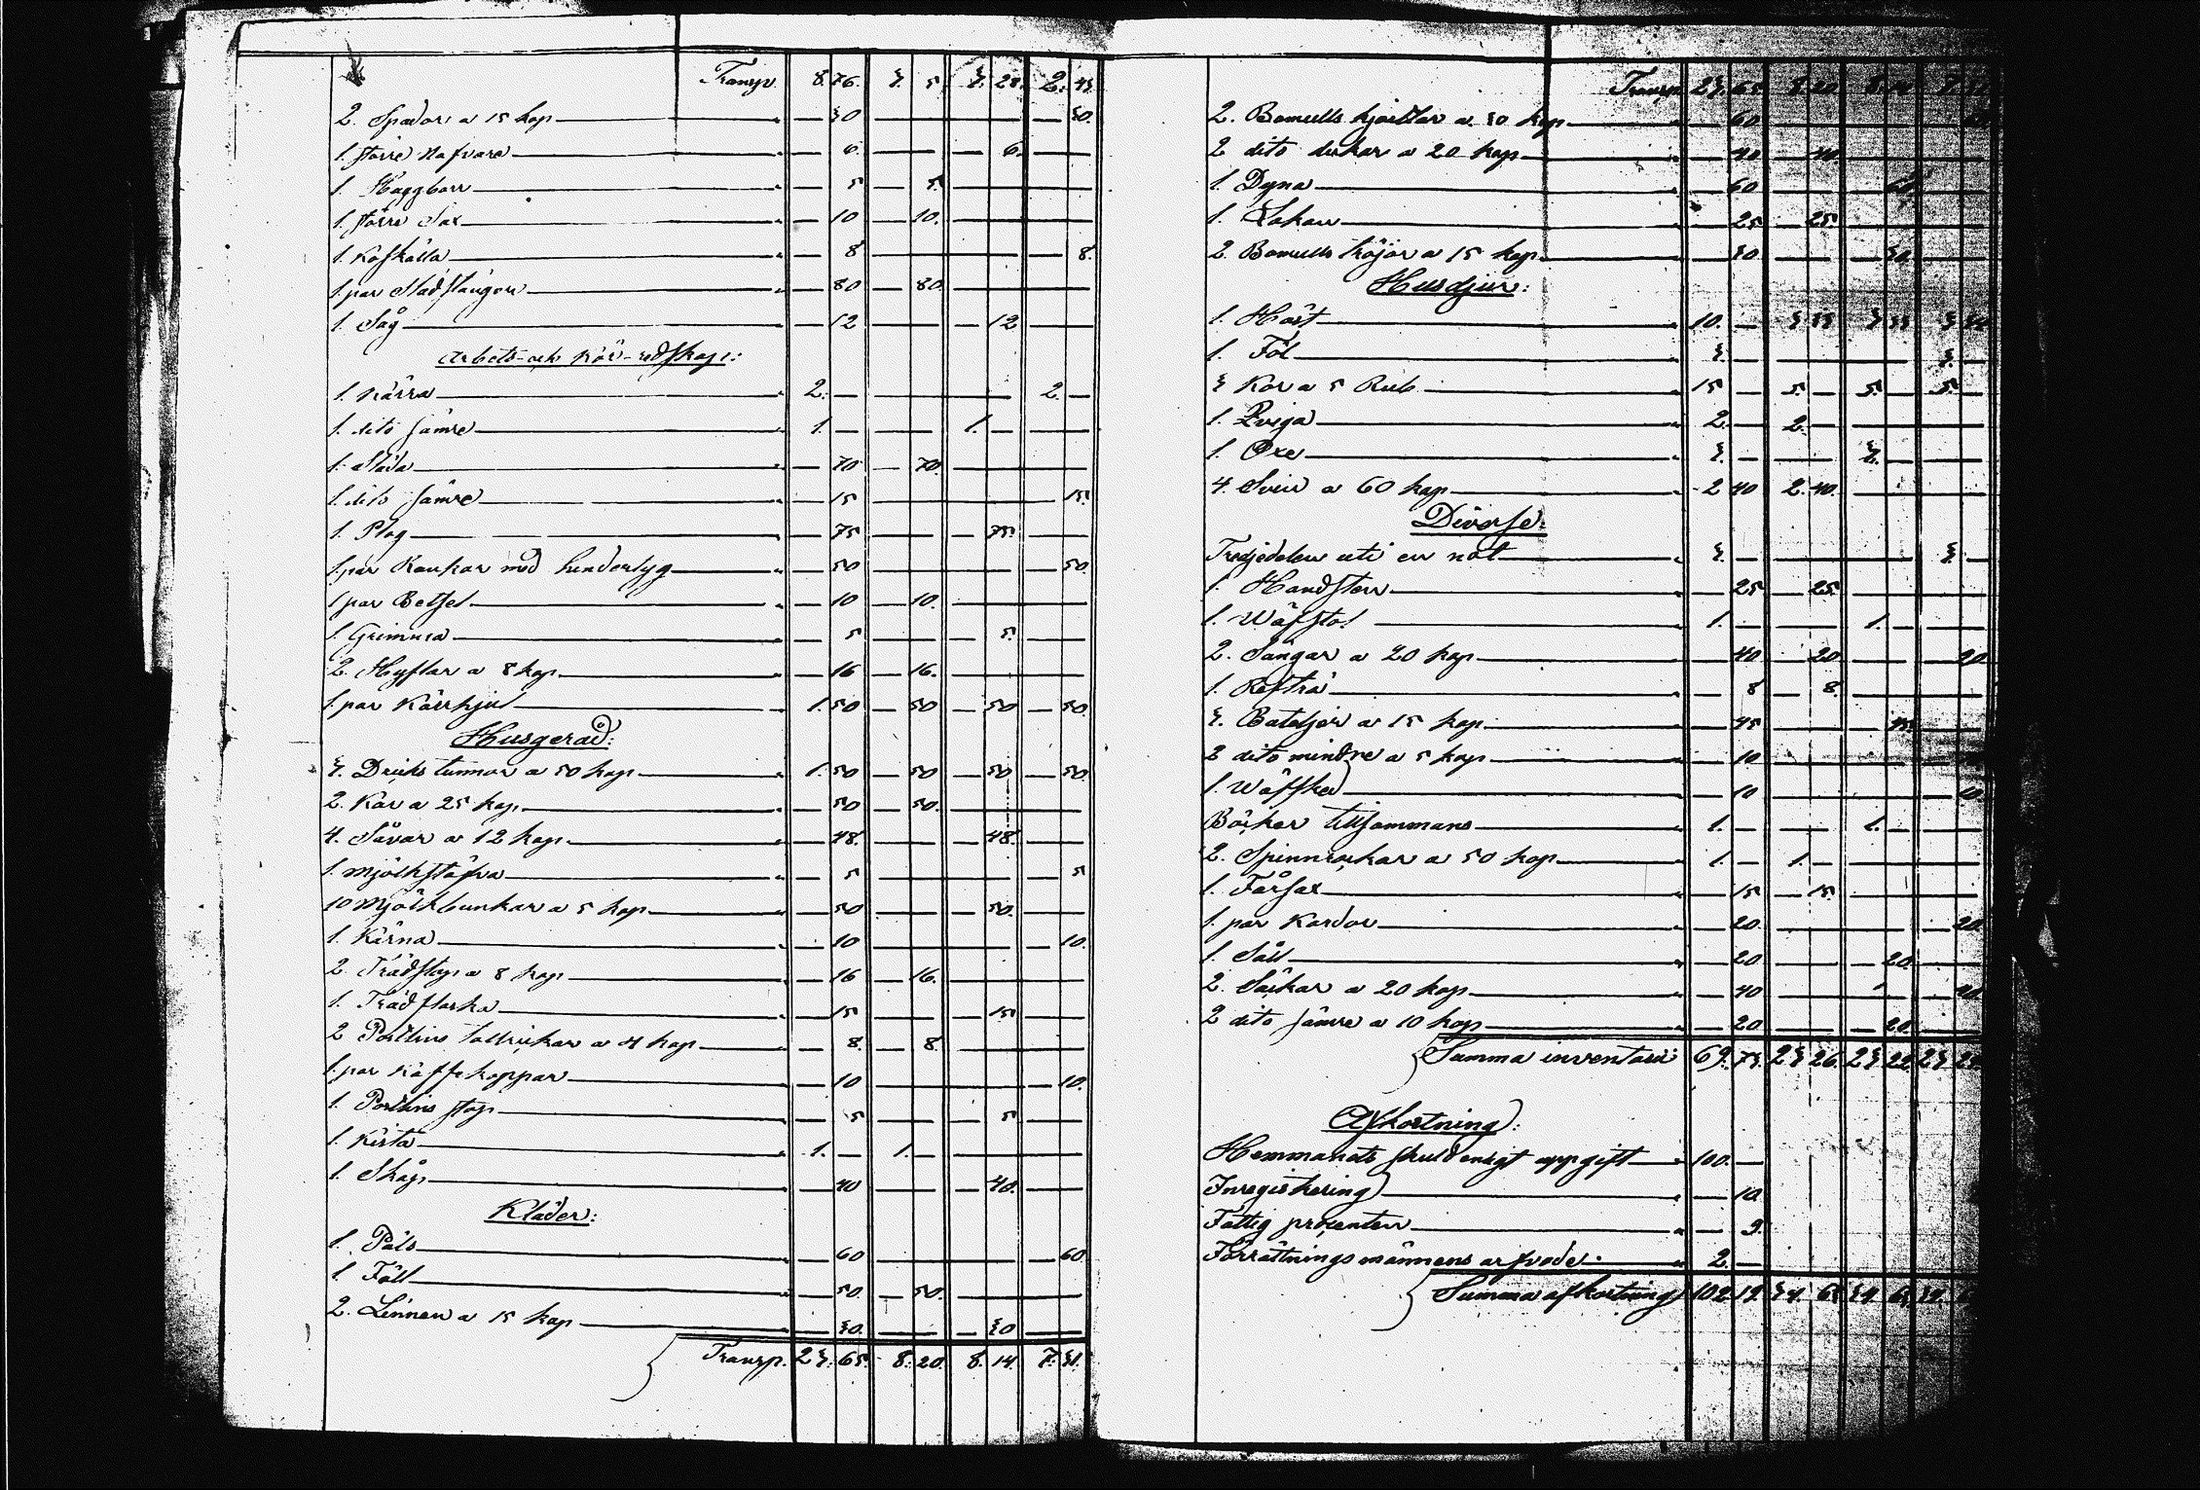 Transp. 8. 76. 3. 5. 3. 28. 2. 43.
2. Spador a 15 kop — 30 — 30.
1. större Nafvare — 6. — 6.
1. Haggborr — 5 — 5.
1. större Sax — 10 — 10.
1. Kolskälla — 8 — 8.
1 par Slädstänger — 80 — 80.
1. Såg — 12 — 12
Arbets- och kör-redskap:
1. Kärra — 2. — 2. —
1. dito sämre — 1. — 1. —
1. Släda — 70 — 70.
1. dito sämre — 15 — 15.
1. Plog — 75 — 75.
1. par Rankar med hindertyg — 50 — 50.
1 par Betsel — 10 — 10.
1. Grimma — 5 — 5.
2. Hyflar a 8 kop — 16 — 16.
1. par Kärrhjul — 1. 50 — 50 — 50 — 50.
Husgeråd:
3. Dricks tunnor a 50 kop — 1. 50 — 50 — 50 — 50.
2. Kar a 25 kop. — 50 — 50.
4. Såvar a 12 kop. — 48. — 48.
1. Mjölkstäfva — 5 — 5
10 Mjölkbunkar a 5 kop — 50 — 50.
1. Kärna — 10 — 10.
2. Trädstop a 8 kop — 16 — 16.
1. Trädflaska — 15 — 15
2 Postlins tallrickar a 4 kop — 8. — 8.
1. par kaffekoppar — 10 — 10.
1. Postlins stop — 5 — 5.
1. Kista — 1. — 1. —
1. Skåp — 40 — 40.
Kläder:
1. Päls — 60 — 60
1. Fäll — 50. — 50.
2. Linnen a 15 kop — 30. — 30
Transp. 23. 65. 8. 20. 8. 14. 7. 31.
Transp. 23. 65. 8. 20. 8. 14. 7. 31
2. Bomulls kjortlar a 30 kop — 60 — 60
2 dito dukar a 20 kop — 40 — 40.
1. Dyna — 60 — 60
1. Lakan — 25 — 25.
2. Bomulls tröjor a 15 kop — 30 — 30.
Husdjur:
1. Häst — 10. — 3 33 3 33 3 34
1. Föl — 3. — 3. —
3 Kor a 5 Rub. — 15 — 5. — 5. — 5. —
1. Qviga — 2. — 2. —
1. Oxe — 3. — 3. —
4. Svin a 60 kop — 2 40 2. 40.
Diverse:
Tredjedelen uti en not — 3. — 3. —
1. Handsten — 25 — 25.
1. Wäfstol — 1. — 1. —
2. Sängar a 20 kop — 40 — 20 — 20.
1. Refträ — 8 — 8.
3. Betesjor a 15 kop — 45 — 45
2 dito mindre a 5 kop — 10
1. Wäfsked — 10 — 10
Böcker tillsammans — 1. — 1. —
2. Spinnrockar a 50 kop — 1. — 1. —
1. Fårsax — 15 — 15.
1. par Kardor — 20. — 20.
1. Såll — 20 — 20.
2. Säckar a 20 kop — 40 — 40.
2 dito sämre a 10 kop — 20 — 20.
Summa inventarii 69. 73. 23 26. 23 22. 23 25
Afkortning:
Hemmanets skuld enligt uppgift — 100. —
Inregistering — 10.
Fattig procenten — 9.
Förrättnings männens arfvode: — 2. —
Summa afkortning 102 19 34.